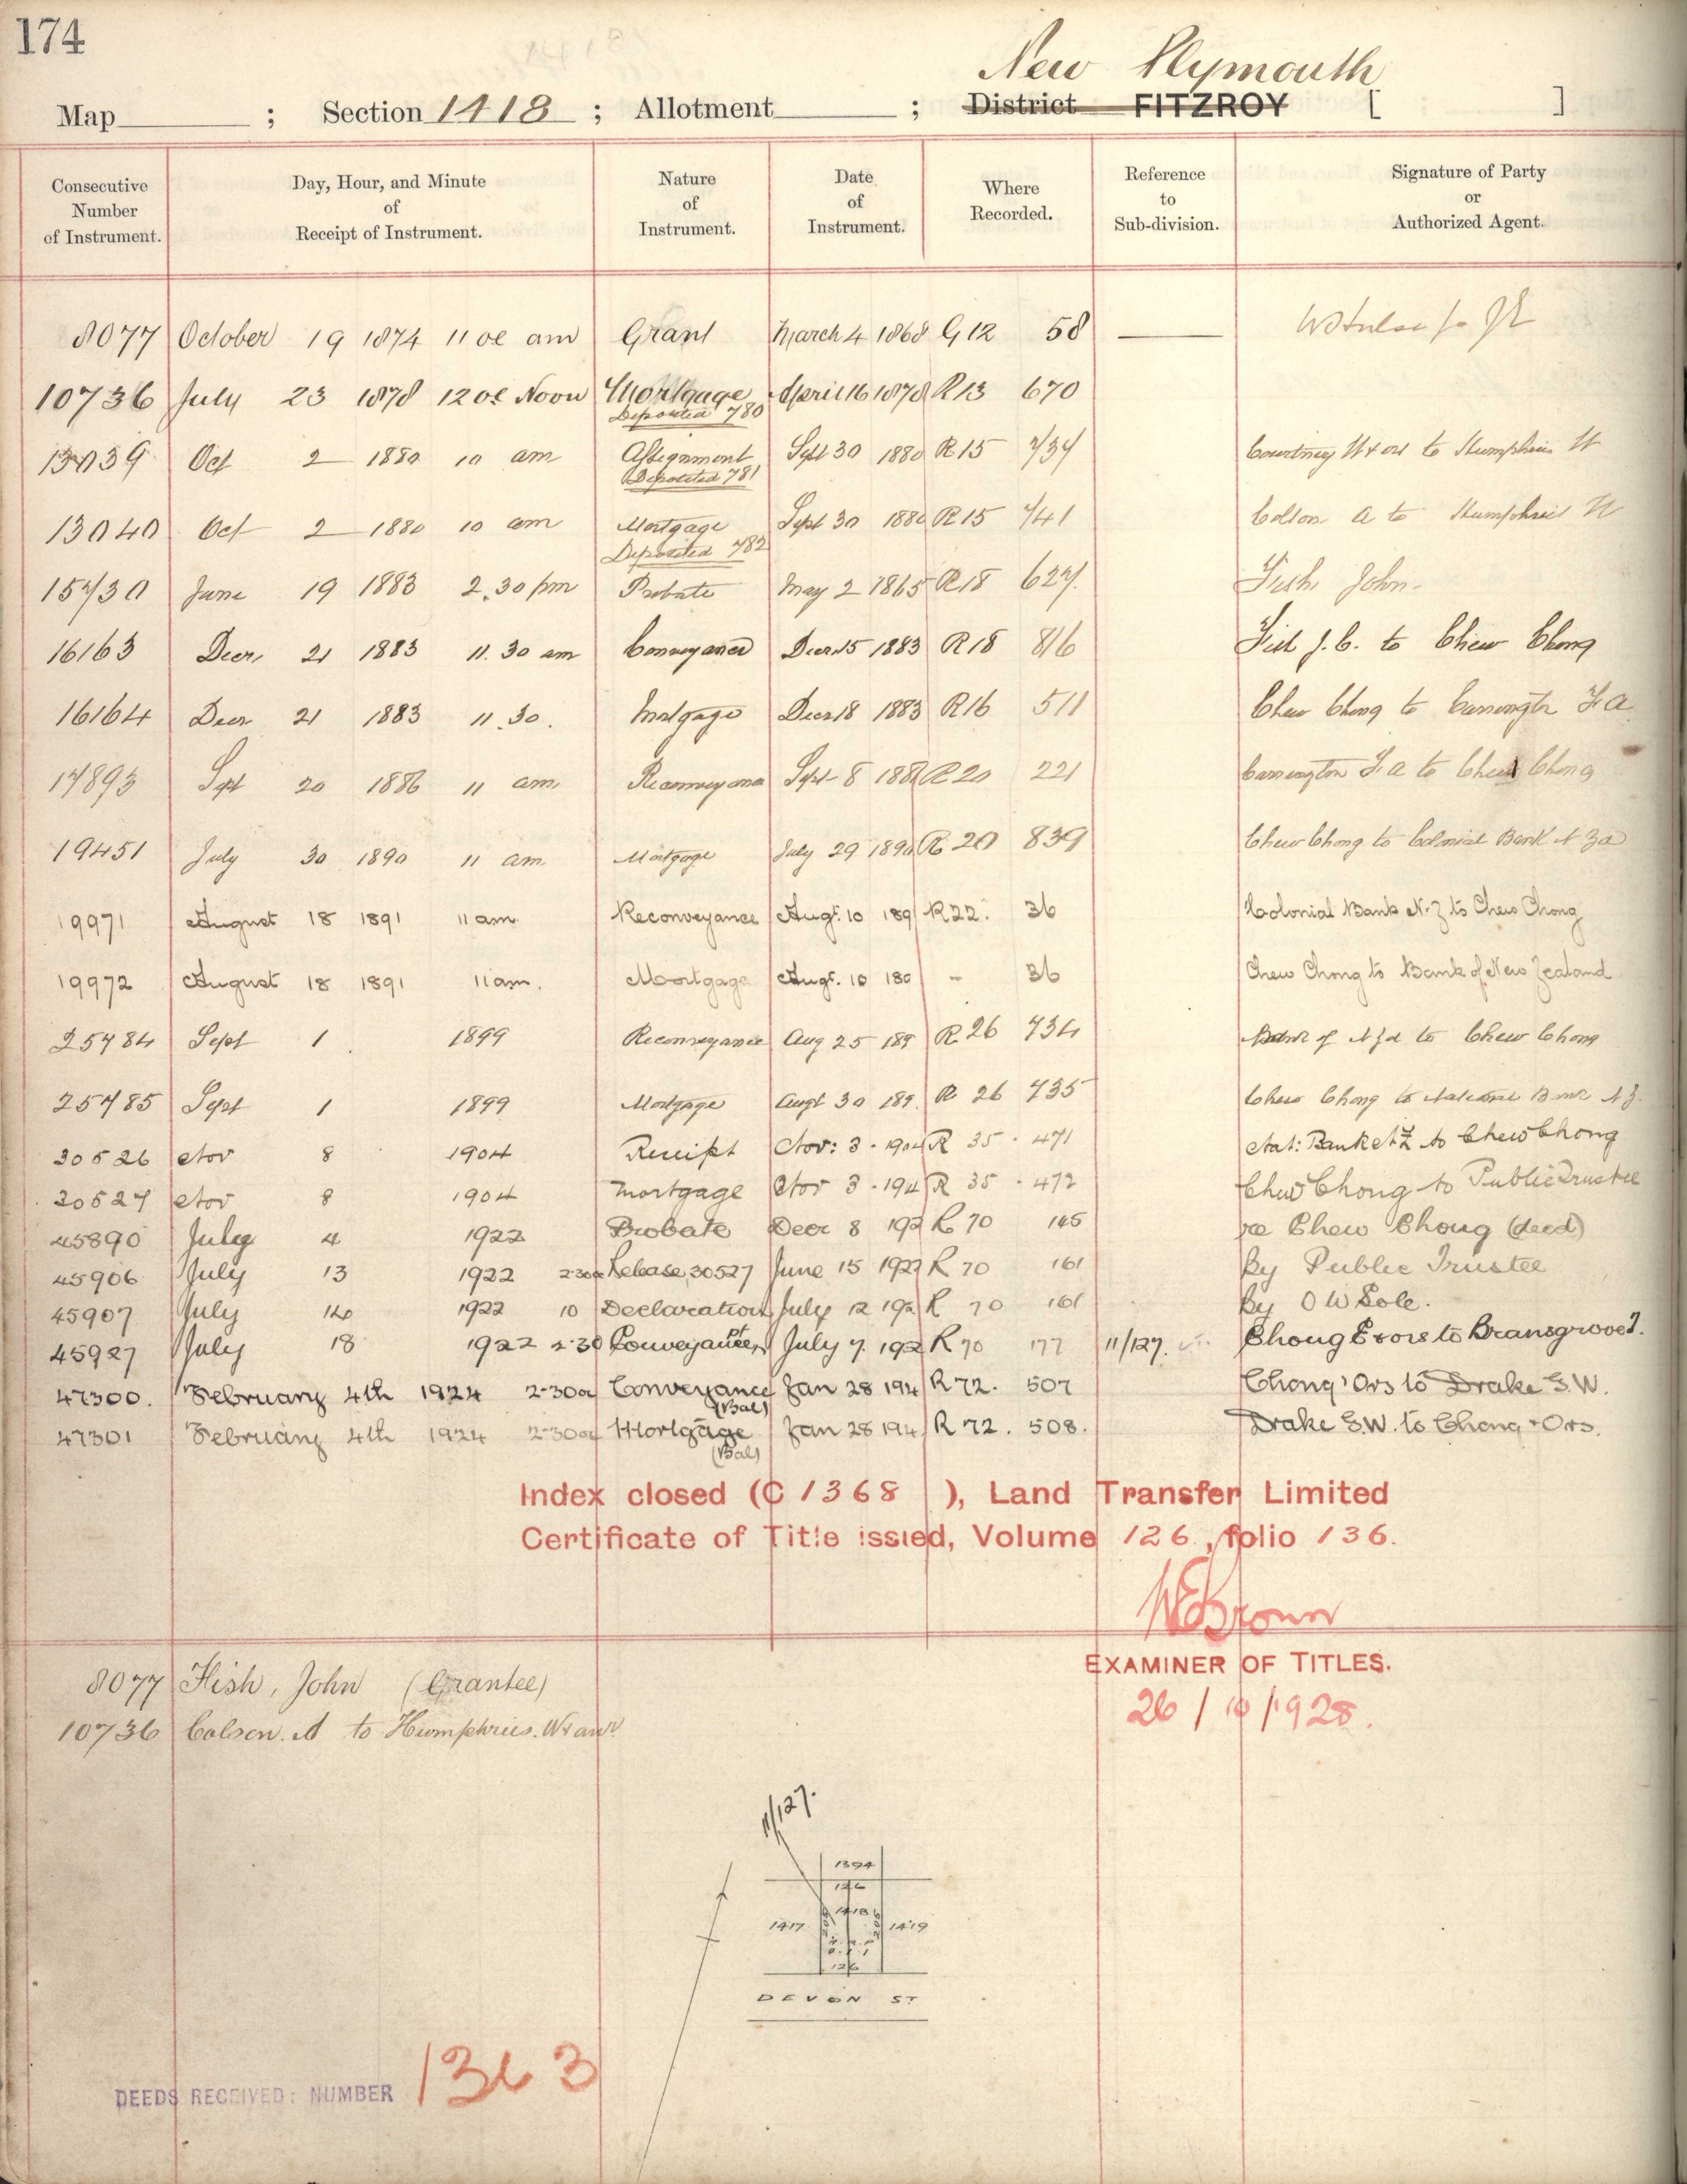 174
New Plymouth
Map ; Section 1418 ; Allotment ; District FITZROY [ ]
Consecutive Number of Instrument. Day, Hour, and Minute of Receipt of Instrument. Nature of Instrument. Date of Instrument. Where Recorded. Reference to Sub-division. Signature of Party or Authorized Agent.
8077 October 19 1874 11 oc am Grant March 4 1868 G 12 58
10736 July 23 1878 12 oc Noon Mortgage April 16 1878 R13 670
Deposited 780
13039 Oct 2 1880 10 am Assignment Sept 30 1880 R15 739 Courtney W & ors to Humphries W
Deposited 781
13040 Oct 2 1880 10 am Mortgage Sept 30 1880 R15 741 Colson A to Humphries W
Deposited 782
15730 June 19 1883 2.30 pm Probate May 2 1865 R18 627. Fish, John.
16163 Decr, 21 1883 11.30 am Conveyance Decr 15 1883 R18 816 Fish J. C. to Chew Chong
16164 Decr 21 1883 11.30. Mortgage Decr 18 1883 R16 511 Chew Chong to Carrington F. A
17893 Sept 20 1886 11 am Reconveyance Sept 8 188 R 20 221 Carrington F. A to Chew Chong
19451 July 30 1890 11 am Mortgage July 29 1890 R 20 839 Chew Chong to Colonial Bank N Zd
19971 August 18 1891 11 am. Reconveyance Augt. 10 189 R22. 36 Colonial Bank N.Z to Chew Chong
19972 August 18 1891 11 am. Mortgage Augt. 10 189 - 36 Chew Chong to Bank of New Zealand
25784 Sept 1 1899 Reconveyance Aug 25 189 R 26 734 Bank of N Zd to Chew Chong
25785 Sept 1 1899 Mortgage Augt 30 189. R 26 735 Chew Chong to National Bank N Z.
30526 Nov 8 1904 Receipt Nov: 3 - 1904 R 35 - 471 Nat: Bank N Z to Chew Chong
30527 Nov 8 1904 Mortgage Nov 3 - 194 R 35 - 472 Chew Chong to Public Trustee
45890 July 4 1922 Probate Decr 8 192 R 70 145 re Chew Chong (decd)
45906 July 13 1922 2.30 Release, 30527 June 15 1922 R 70 161 By Public Trustee
45907 July 1922 10 Declaration July 12 192 R 70 161 By O W Sole.
45927 July 18 1922 2.30 Conveyance July 7. 192 R 70 177 11/127. Chong & ors to Bransgrove
47300. February 4th 1924 2-30 Conveyance Jan 28 194 R 72. 507 Chong & Ors to Drake S.W.
(Bal)
47301 February 4th 1924 2-30 Mortgage Jan 28 194 R 72. 508. Drake S.W. to Chong & Ors.
(Bal)
Index closed (C 1368 ), Land Transfer Limited
Certificate of Title issued, Volume 126, folio 136.
W E Brown
EXAMINER OF TITLES.
8077 Fish, John (Grantee)
26 / 10 / 1928.
10736 Colson. A to Humphries. W & anr.
11/127.
1394
126
1418
1417
1419
126
DEVON ST
DEEDS RECEIVED: NUMBER 1363